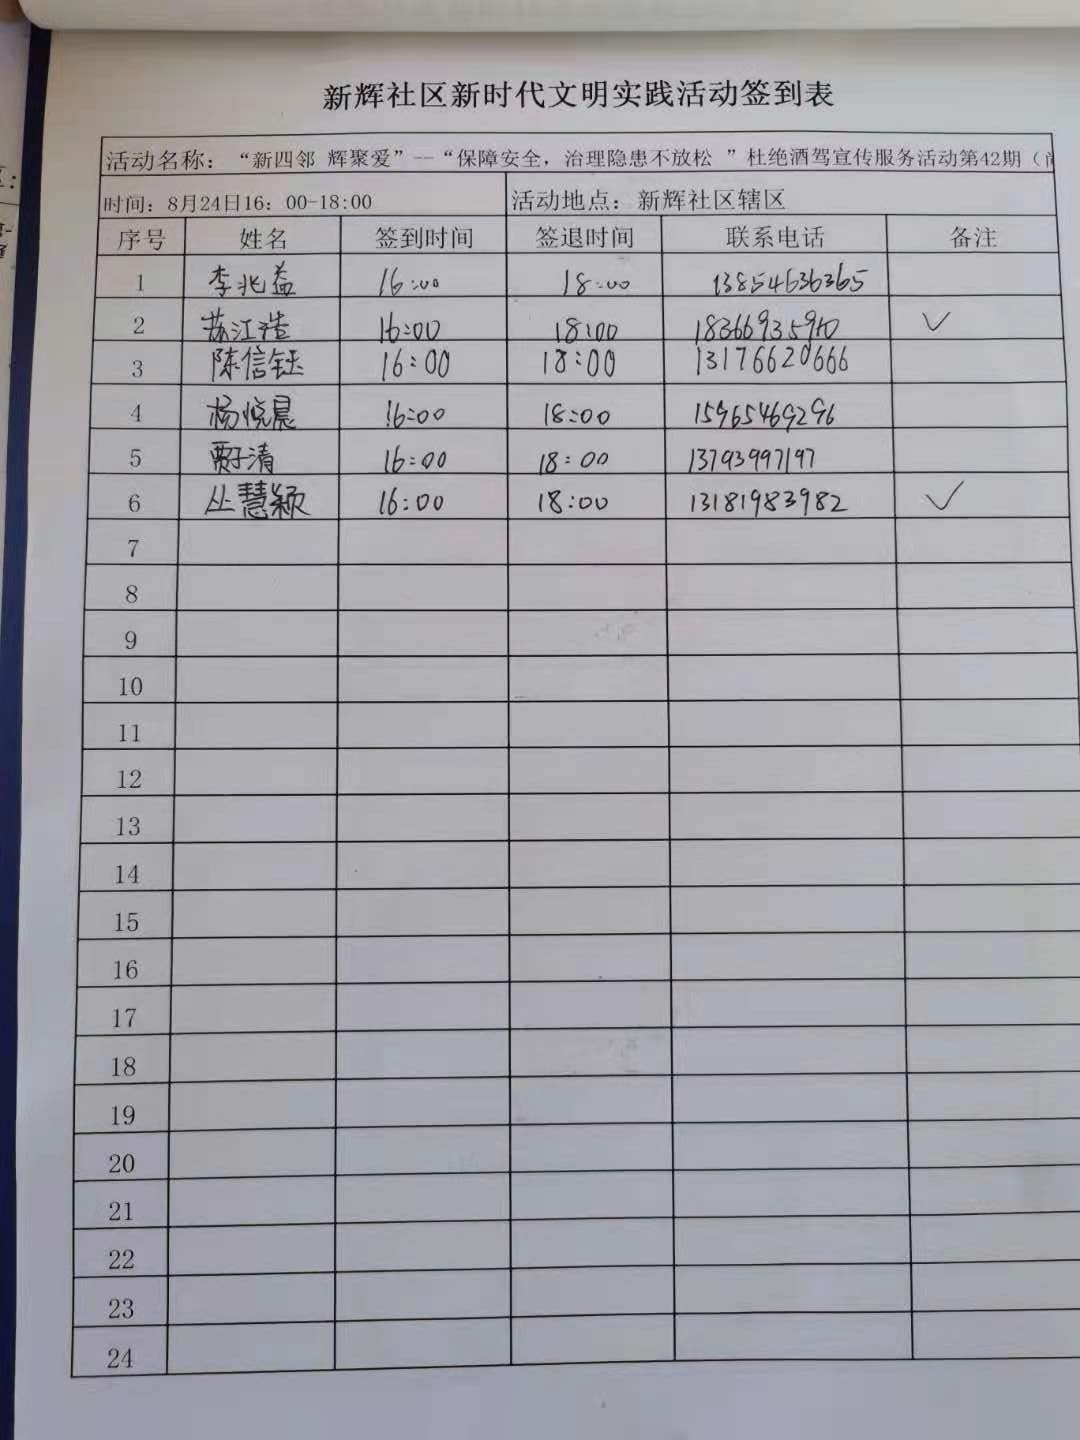 新辉社区新时代文明实践活动签到表
活动名称：“新四邻 辉聚爱”--“保障安全，治理隐患不放松 ”杜绝酒驾宣传服务活动第42期（
时间：8月24日16：00-18:00 活动地点：新辉社区辖区
序号 姓名 签到时间 签退时间 联系电话 备注
1 李兆益 16:00 18:00 13854636365
2 苏江浩 16:00 18:00 18366935910 ✓
3 陈信钰 16:00 18:00 13176620666
4 杨悦晨 16:00 18:00 15965469296
5 贾子清 16:00 18:00 13793997197
6 丛慧颖 16:00 18:00 13181983982 ✓
7
8
9
10
11
12
13
14
15
16
17
18
19
20
21
22
23
24